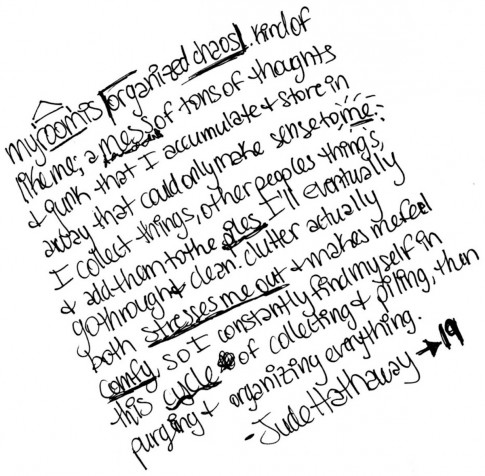 my room is organized chaos! kind of
like me; a mess of tons of thoughts
+ junk that I accumulate + store in
a way that could only make sense to me.
I collect things, other peoples things,
+ add them to the piles I'll eventually
go through + clean. clutter actually
both stresses me out + makes me feel
comfy, so I constantly find myself in
this cycle of collecting + piling, then
purging + organizing everything.
- Jude Hathaway → 19